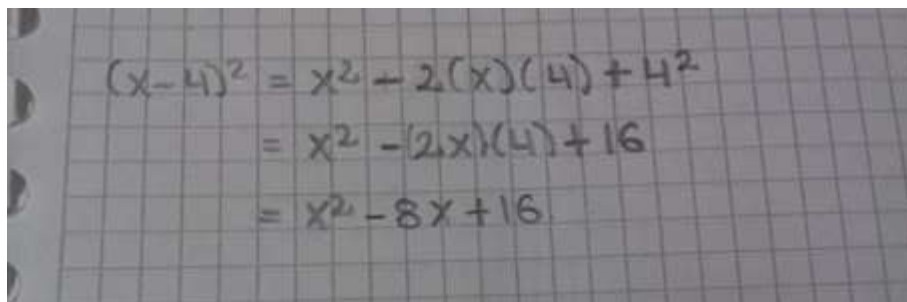 (x-4)² = x² - 2(x)(4) + 4²
= x² - (2x)(4) + 16
= x² - 8x + 16